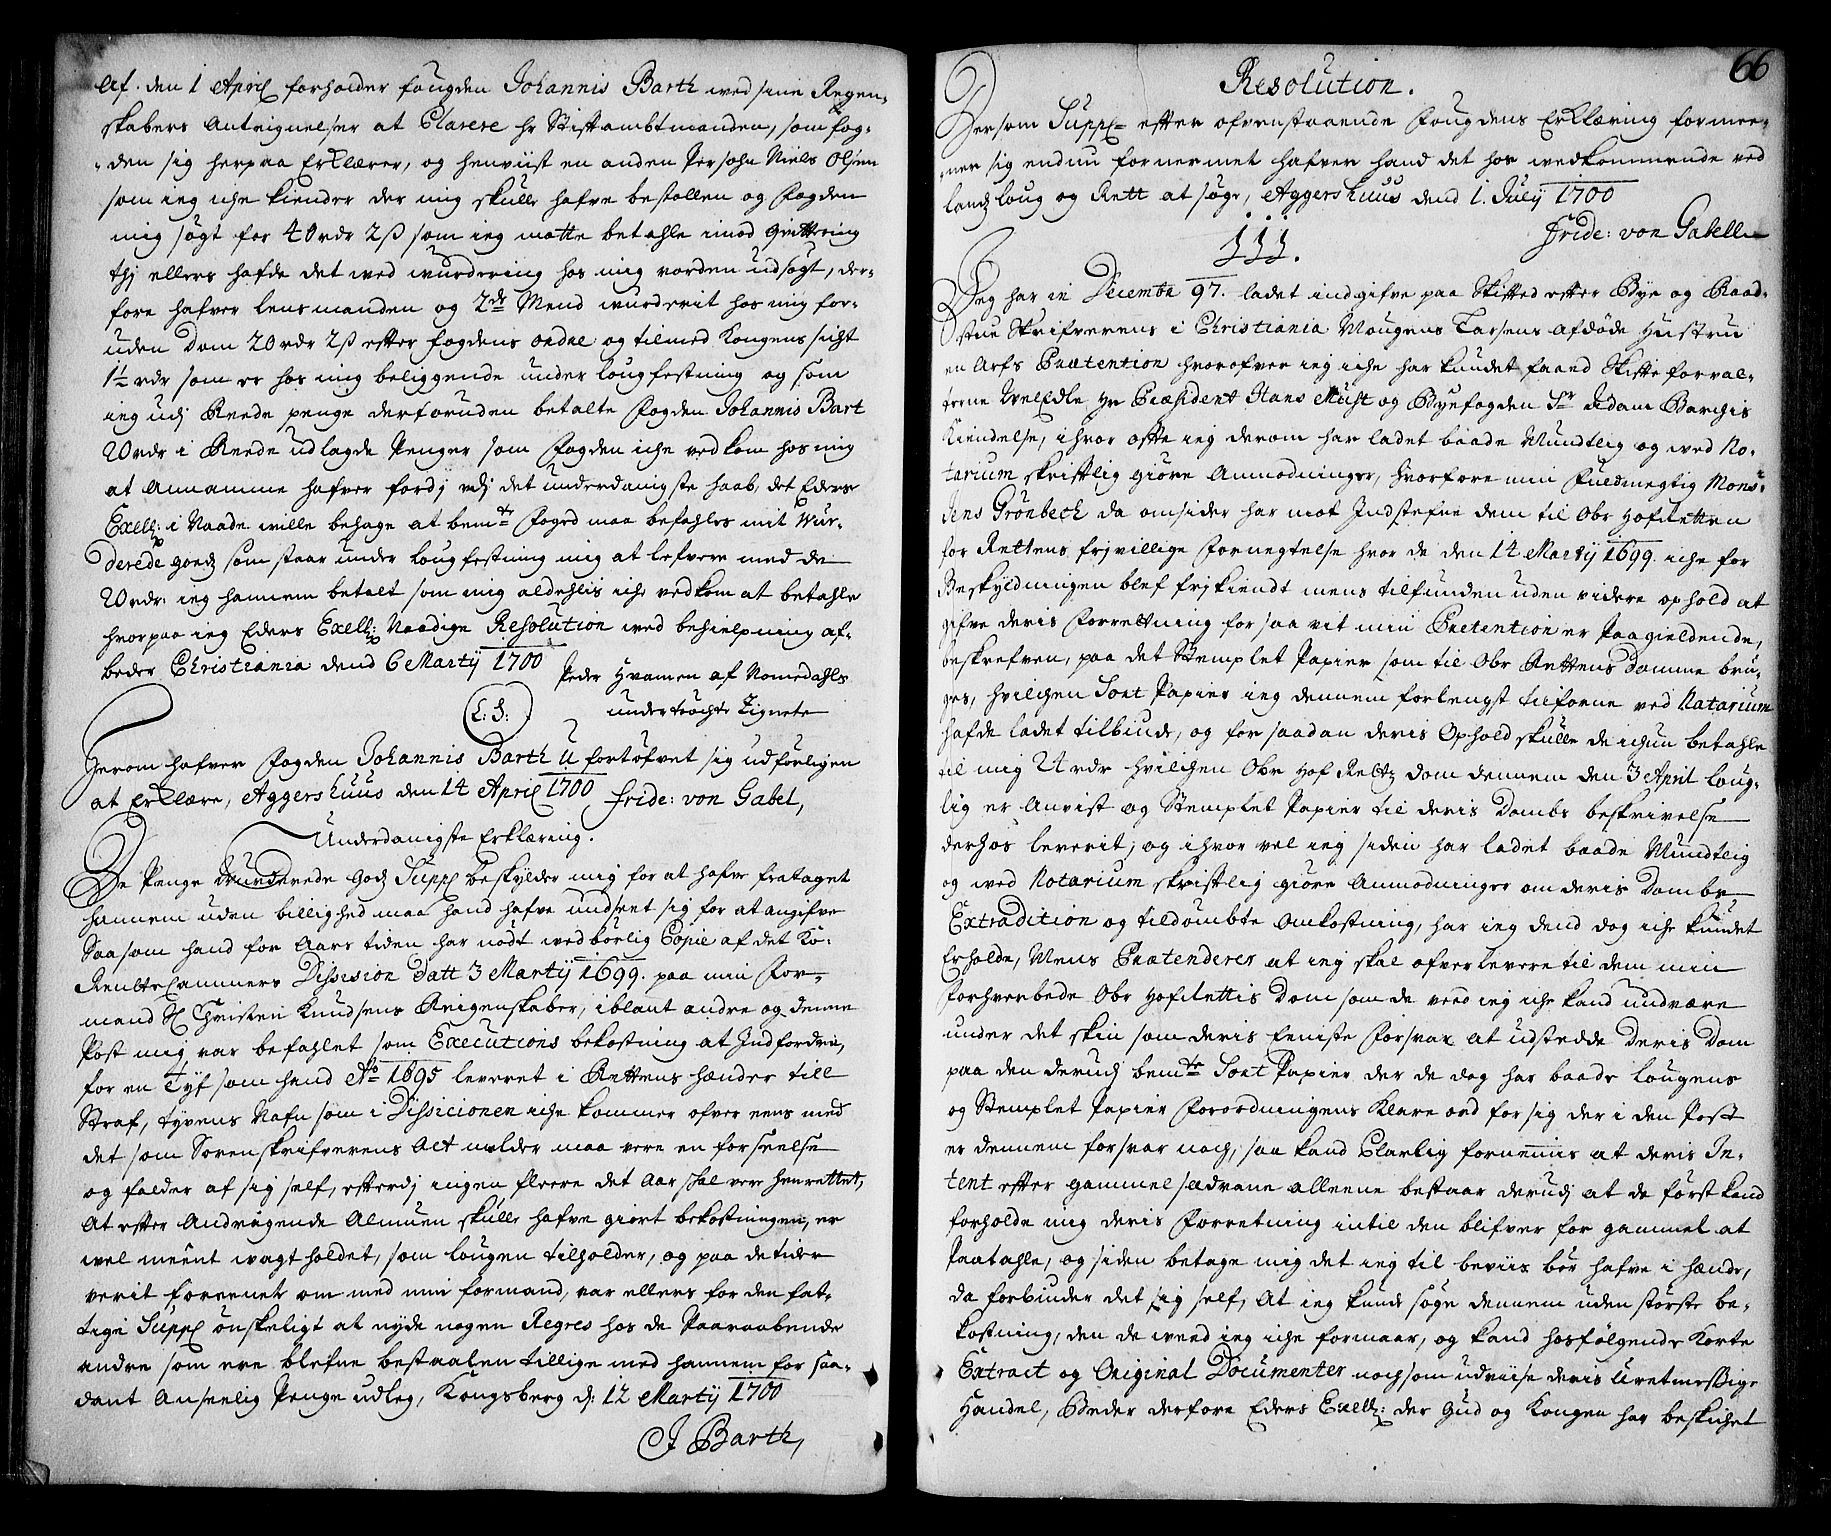 af. den 1 April forholder fougden Johannis Barth wed sine Regen-
skabers Antegnelser at Clarere hr Stiftambtmanden, som fog-
den sig herpaa Erklærer, og henviist en anden Persohn Niels Olsen
som ieg iche kiender der mig skulle hafve bestollen og Fogden
mig søgt for 40 rdr 2 ß som ieg motte betahle imod Qvittering
thj ellers hafde det wed wurdering hos mig vorden udsøgt, der-
fore hafver lensmanden og 2de Mend wurderit hos mig for-
uden Dom 20 rdr 2 ß efter fogdens ordre og tilmed Kongens sicht
1½ rdr som er hos mig beliggende under lougfestning og som
ieg udj Reede penge desforuden betalte Fogden Johannis Bart
20 rdr i Reede udlagde Penger som Fogden iche vedkom hos mig
at Annamme hafver fordj udj det underdanigste haab, det Eders
Exell: i Naade wille behage at bemte Foged maa befahles mit Wur-
derede goedz som staar under lougfestning mig at lefvere med de
20 rdr: ieg hannem betalt som mig aldehlis iche vedkom at betahle
hvorpaa ieg Eders Exell: Naadige Resolution wed behielpning af-
beder Christiania dend 6 Martÿ 1700
Peder Hvamen af Nomedahls
(L: S:) undertrøchte Zignete
Herom hafver Fogden Johannis Barth Ufortøfvet sig udførligen
at Erklære, Aggershuus den 14 April 1700 Fride: von Gabel,
Underdanigste Erklæring.
De Penge wurderede Godz Suppl beskylder mig for at hafve frataget
hannem uden billighed maa hand hafve undseet sig for at angifve
Saasom hand for Aars tiden har nødt wedbørlig Copie af det Ko:
RentteCammers Dissision Datt 3 Martÿ 1699. paa min For-
mand Sl Christen Knudsens Reigenskaber, iblant andre og denne
Post mig var befahlet som Executions bekostning at Indfordre,
for en Tyf som hand Ao 1695 leveret i Rettens hænder till
Straf, tyvens Nafn som i Dissicionen iche kommer ofver eens med
det som Sorenskrifverens Act melder maa vere en forseelse
og falder af sig self, efterdj ingen fleere det Aar skal vere henrettet,
At efter Andragende Almuen skulle hafve giort bekostningen, er
wel meent wagt holdet, som lougen tilholder, og paa de tider
verit foreenet om med min formand, var ellers for den fat-
tige Suppl ønskeligt at nyde nogen Regres hos de Paaraabende
andre som ere blefne bestaalen tillige med hannem for saa-
dant Anseelig Penge udleg, Kongsberg d: 12 Martÿ 1700
J Barth,
66
Resolution.
Dersom Suppl= efter ofvenstaaende Fougdens Erklæring formee-
ner sig endnu fornermet hafver hand det hos wedkommende ved
landz loug og Rett at søge, Aggershuus dend 1. Julÿ 1700
Fride: von Gabell
111.
Jeg har in Decembr 97. ladet indgifve paa Skifted efter Bÿe og Raad-
stue Skrifverens i Christiania Mougens Larsens afdøde Hustru
en Arfs Prætention hvorofver ieg iche har kundet faaed Skifte forval-
terne WelEdle Hr Præsident Hans Must og Byefogden Sr Adam Barchis
Kiendelse, ihvor ofte ieg derom har ladet baade Mundtlig og wed No-
tarium skriftlig giøre Anmodninger, hvorfore min Fuldmegtig Mons:
Jens Grønbech da omsider har mot Indstefne dem til Obr Hofretten
for Rettens frjvillige Fornegtelse hvor de den 14 Martÿ 1699. iche for
Beskyldningen blef frjkiendt mens tilfunden uden videre ophold at
gifve deris Forretning for saa vit min Prætention er Paagieldende,
beskrefven, paa det Stemplet Papier som til Obr Rettens Domme bru-
ges, hvilchen Sort Papier ieg dennem forlengst tilforne ved Notarium
hafde ladet tilbinde, og for saadan deris Ophold skulle de ichun betahle
til mig 24 rdr hvilchen Obr Hof Rettz dom dennem den 3 April loug-
lig er Anvist og Stemplet Papier til deris Dombs beskrivelse
derhos leverit, og ihvor vel ieg siden har ladet baade Mundtlig
og wed Notarium skriftlig giøre Anmodninger om deris Dombs
Extradition og tildømbte omkostning, har ieg dend dog iche kundet
Erholde, Mens Prætenderer at ieg skal ofverlevere til dem min
forhverbede Obr Hofrettis Dom som de veed ieg iche kand undvære
under det skin som deris Eeniste Forsvar at udstedde deris Dom
paa den derudj bemte Sort Papier der de dog har baade lougens
og Stemplet Papier Forordningens Klare ord for sig der i den Post
er dennem forsvar noch, saa kand Clarlig fornemmis at deris In-
tent efter gammel sædvane alleene bestaar derudj at de først kand
forholde mig deris Forretning intil den blifver for gammel at
Paatahle, og siden betage mig det ieg til beviis bør hafve i hænde,
da forbinder det sig self, At ieg kunde søge dennem uden største be-
kostning, den de weed ieg iche formaar, og kand hosfølgende Korte
Extract og Original Documenter noch som udviise deris Uretmessige
Handel, Beder derfore Eders Exell: der Gud og Kongen har beskichet